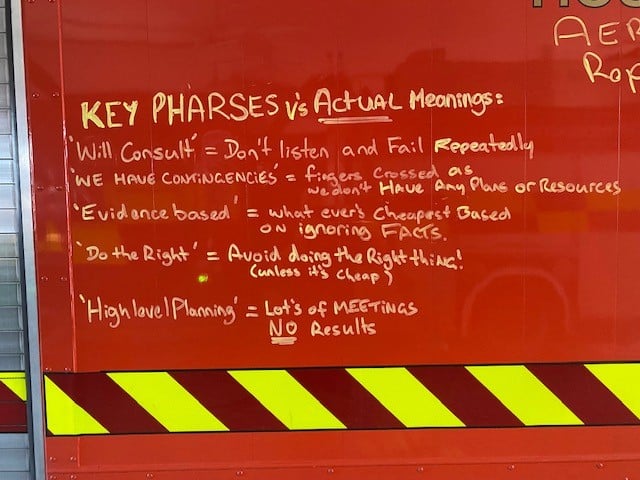 AER
Rop
KEY PHARSES v's ACTUAL Meanings:
'Will Consult' = Don't listen and Fail Repeatedly
'WE HAVE CONTINGENCIES' = fingers crossed as
we don't HAVE Any Plans or Resources
'Evidence based' = what ever's Cheapest Based
on ignoring FACTS.
'Do the Right' = Avoid doing the Right thing!
(unless it's cheap)
'High level Planning' = Lot's of MEETINGS
NO Results